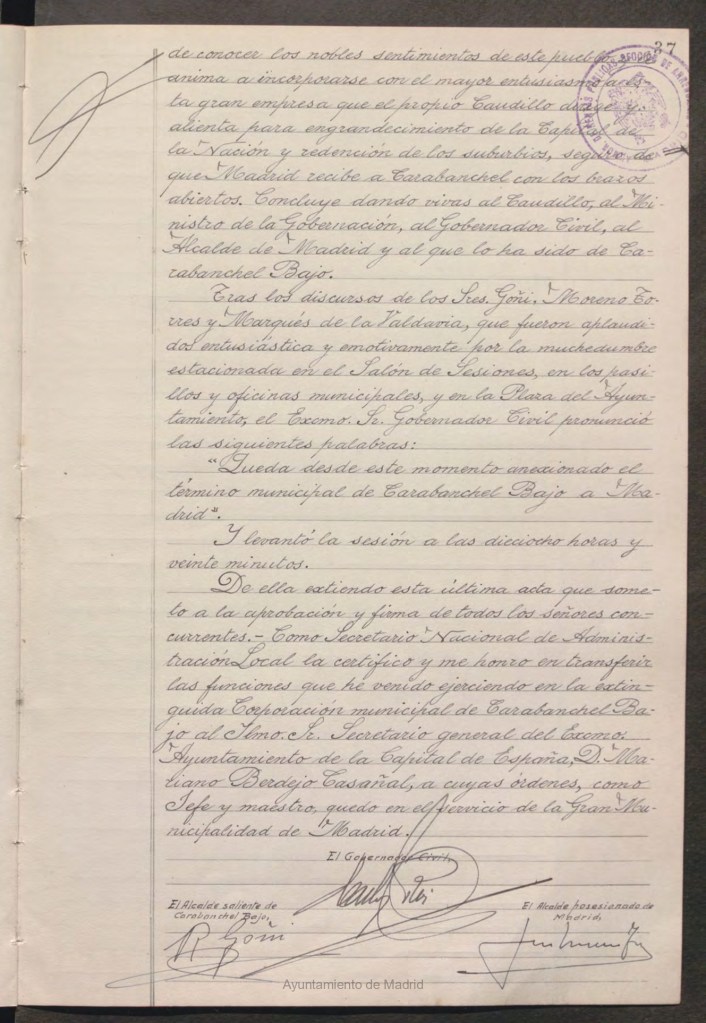 37
de conocer los nobles sentimientos de este pueblo
anima a incorporarse con el mayor entusiasmo a es-
ta gran empresa que el propio Caudillo dirige y
alienta para engrandecimiento de la Capital de
la Nación y redención de los suburbios, seguro de
que Madrid recibe a Carabanchel con los brazos
abiertos. Concluye dando vivas al Caudillo, al Mi-
nistro de la Gobernación, al Gobernador Civil, al
Alcalde de Madrid y al que lo ha sido de Ca-
rabanchel Bajo.
Tras los discursos de los Sres. Goñi, Moreno To-
rres y Marqués de la Valdavia, que fueron aplaudi-
dos entusiástica y emotivamente por la muchedumbre
estacionada en el Salón de Sesiones, en los pasi-
llos y oficinas municipales, y en la Plaza del Ayun-
tamiento, el Excmo. Sr. Gobernador Civil pronunció
las siguientes palabras:
"Queda desde este momento anexionado el
término municipal de Carabanchel Bajo a Ma-
drid".
Y levantó la sesión a las dieciocho horas y
veinte minutos.
De ella extiendo esta última acta que some-
to a la aprobación y firma de todos los señores con-
currentes.- Como Secretario Nacional de Adminis-
tración Local la certifico y me honro en transferir
las funciones que he venido ejerciendo en la extin-
guida Corporación municipal de Carabanchel Ba-
jo al Ilmo. Sr. Secretario general del Excmo.
Ayuntamiento de la Capital de España, D. Ma-
riano Berdejo Casañal, a cuyas órdenes, como
Jefe y maestro, quedo en el servicio de la Gran Mu-
nicipalidad de Madrid.
El Gobernador Civil,
El Alcalde saliente de
Carabanchel Bajo,
El Alcalde posesionado de
Madrid,
R Goñi
Ayuntamiento de Madrid